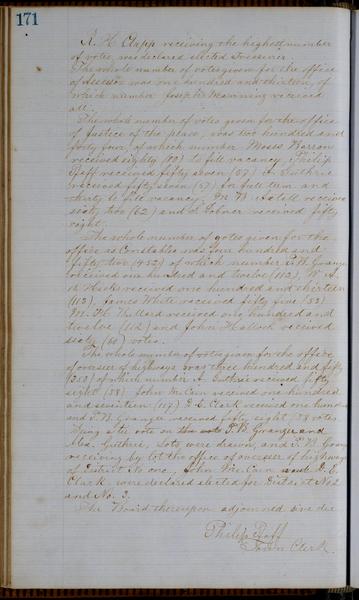 171
A. H. Clapp receiving the highest number
of votes, was declared elected Treasurer.
The whole number of votes given for the office
of Assessor was one hundred and thirteen, of
which number Joseph Manning received
all.
The whole number of votes given for the office
of Justice of the peace, was two hundred and
forty four, of which number Moses Warren
received eighty (80) to fill vacancy, Philip
Pfaff received fifty seven (57) A. Guthrie
received fifty seven (57) for full term and
thirty to fill vacancy, M. W. received
sixty two (62) and received fifty
eight.
The whole number of votes given for the
office of Constables was four hundred and
fifty two (452) of which number P. B. Granger
received one hundred and twelve (112), W. A.
received one hundred and thirteen
(113), James White received fifty five (55)
M. H. Willard received one hundred and
twelve (112) and John Hallock received
sixty (60) votes.
The whole number of votes given for the office
of overseer of highways was three hundred and fifty
(353) of which number A. Guthrie received fifty
eight (58) John McCain received one hundred
and seventeen (117) D. E. Clark received one hundred
and P. B. Granger received fifty eight (58 votes.
Being a tie vote on P. B. Granger and
Alex. Guthrie, Lots were drawn, and P. B. Granger
receiving by lot the office of overseer of highways
of District No one, John McCain and D. E.
Clark were declared elected for District No 2
and No. 3.
The Board thereupon adjourned sine die
Philip Pfaff
Town Clerk.